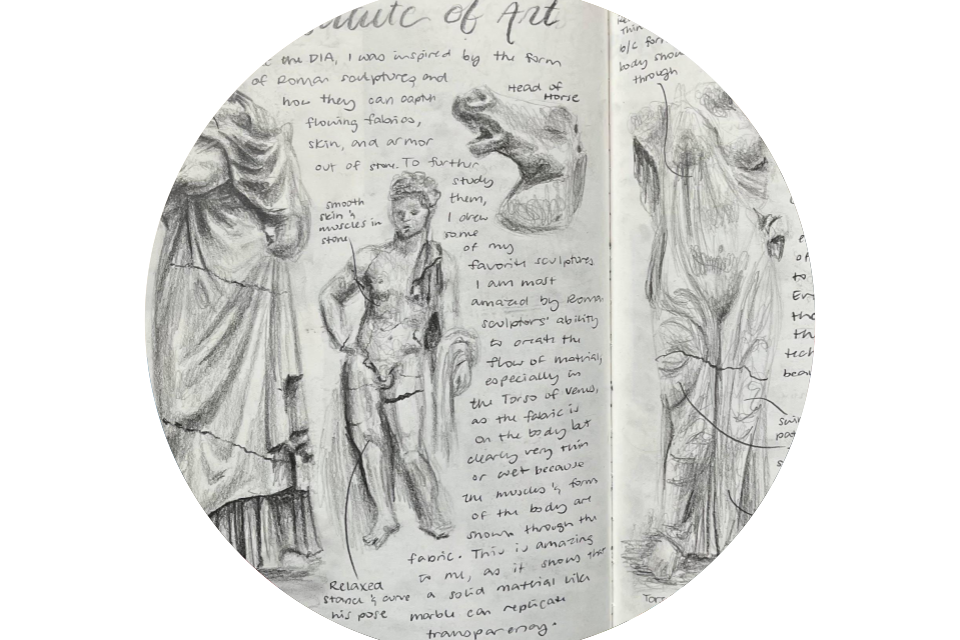 of Art
the DIA, I was inspired by the form
of Roman sculptures, and
how they can captu
flowing fabrics,
skin, and armor
out of stone. To further
study
them,
I drew
some
of my
favorite sculptures
I am most
amazed by Roma
sculptors' ability
to create the
flow of material,
especially in
the Torso of Venus,
as the fabric is
on the body but
clearly very thin
or wet because
the muscles & form
of the body are
shown through the
fabric. This is amazing
to me, as it shows that
a solid material like
marble can replicate
transparency.
Head of
Horse
smooth
skin &
muscles in
stone
Relaxed
stance & curve
his pose
thin
b/c for
body show
through
e
of
to
Er
the
th
tech
beau
pat
s
Tors